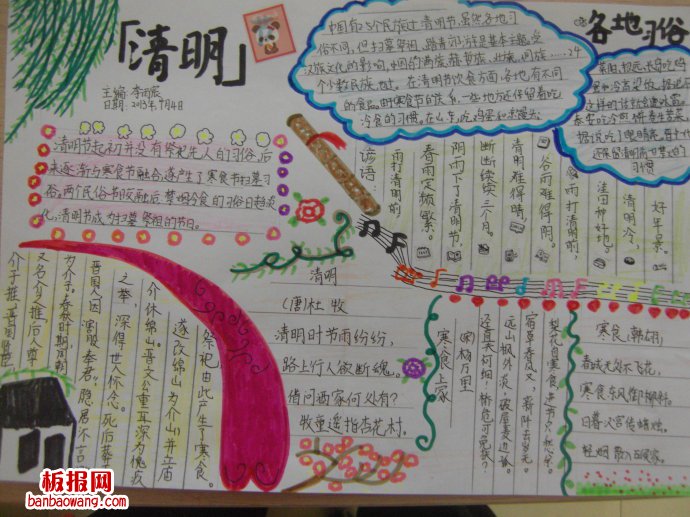 「清明」
主编：李雨宸
日期：2015年4月4日
清明节起初并没有祭祀先人的习俗，后
来逐渐与寒食节融合，逐产生了寒食节扫墓习
俗。两个民俗节段融后，禁烟冷食的习俗日趋淡
化，清明节成为扫墓祭祖的节日。
中国有25个民族过清明节，虽然各地习
俗不同，但扫墓祭祖、踏青郊游是基本主题。受
汉族文化的影响，中国的满族、赫哲族、壮族、回族……24
个少数民族，也过。在清明节饮食方面，各地有不同
的食品。由寒食节的关系，一些地方还保留着吃
冷食的习惯。在山东，吃鸡蛋和冷馒头
各地习俗
还保留清明流
习惯
谚语：
雨打清明前
春雨定频繁。
阴雨下了清明节，
断断续续三个月。
清明难得晴，
谷雨难得阴。
雨打清明前，
洼田种好地。
清明冷，
好年景。
清明
（唐）杜牧
清明时节雨纷纷，
路上行人欲断魂。
借问酒家何处有？
牧童遥指杏花村。
寒食上冢
（宋）杨万里
迳直夫何细！桥危可免扶？
远山枫外淡，破屋麦边孤。
宿草春风又，新阡去岁无。
梨花自寒食，进节只愁余。
寒食（韩翃）
春城无处不飞花，
寒食东风御柳斜。
日暮汉宫传蜡烛，
轻烟散入五侯家。
介子推，晋国贵族
又名介之推，后人尊
为介子。春秋时期，
晋国人，因"割股奉君"，隐居"不言
之举，深得世人怀念。死后葬
介休绵山。晋文公重耳深为愧疚
遂改绵山为介山，并立庙
祭祀，由此产生了寒食。
板报网
banbaowang.com